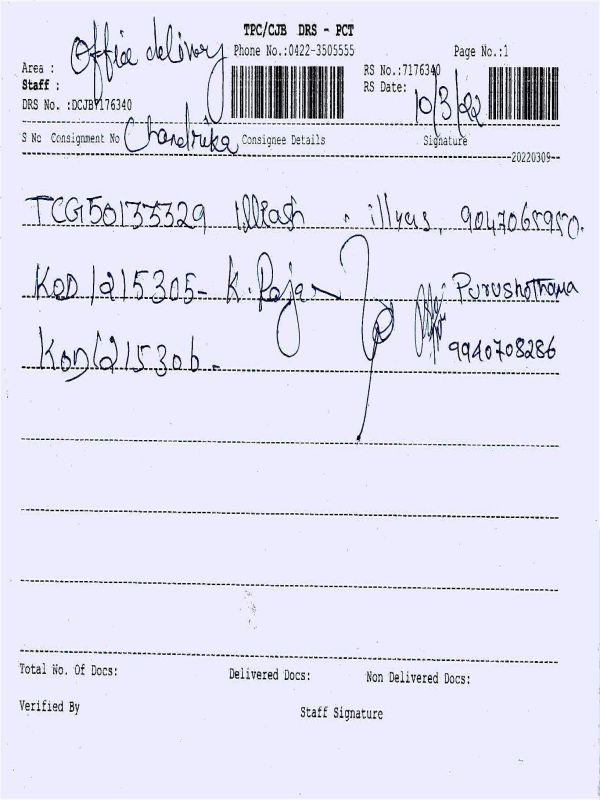 TPC/CJB DRS - PCT
Office delivery
Phone No.:0422-3505555
Page No.:1
Area :
RS No.:7176340
Staff :
RS Date: 10/3/22
DRS No. :DCJB7176340
S No Consignment No Chandrika Consignee Details Signature
20220309
TCG50135329 illyas. 9047065950.
KOD1215305- K. Raja Purushothama
KOD1215306. 9940708286
Total No. Of Docs: Delivered Docs: Non Delivered Docs:
Verified By Staff Signature